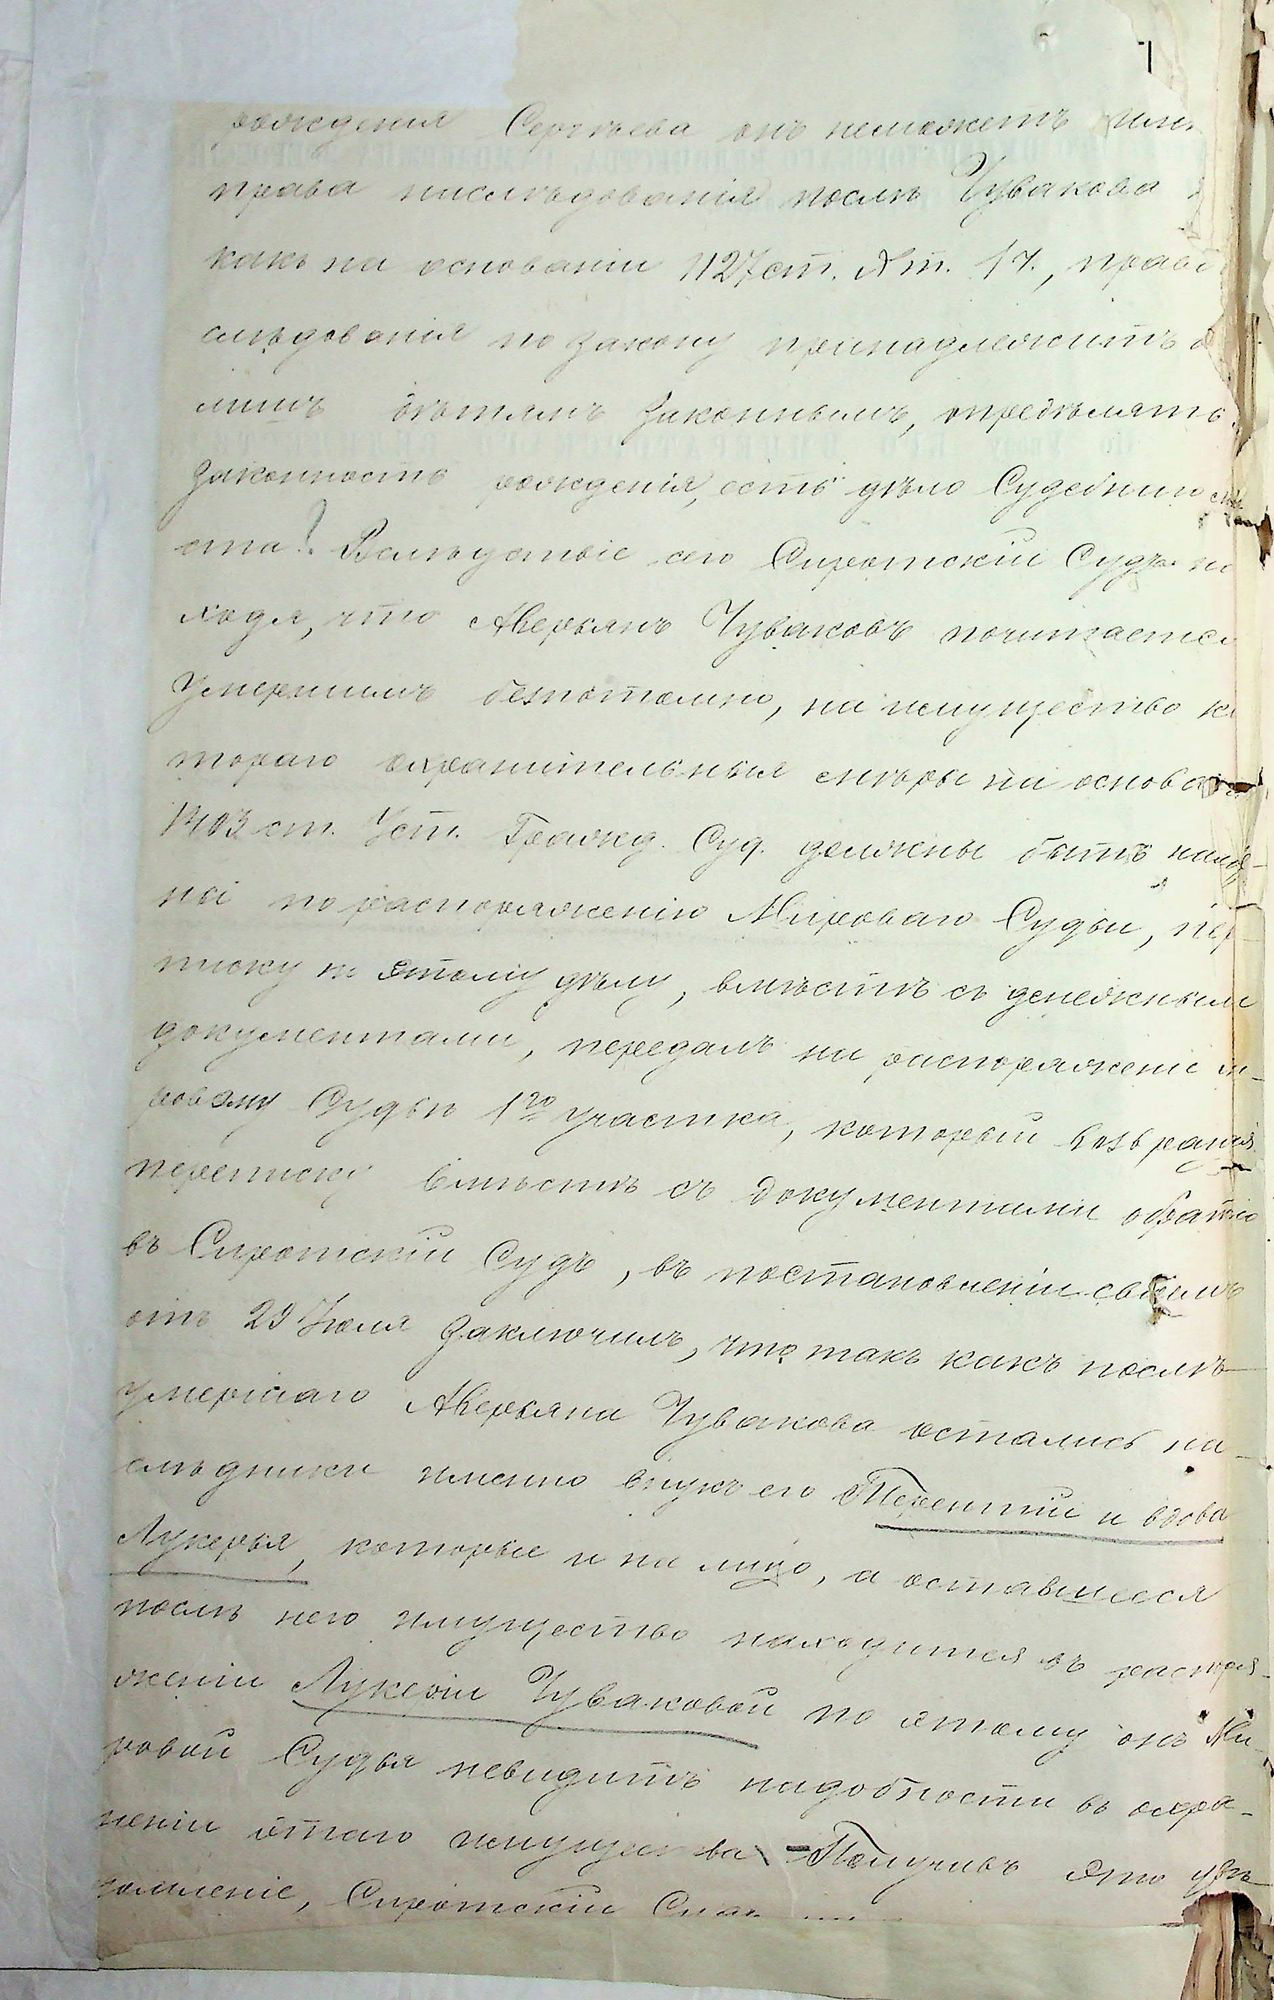 7
рожденія Сергѣева онъ неможетъ имѣ
права наслѣдованія послѣ Чувакова
какъ на основаніи 1127 ст. X т. 1 ч., право
слѣдованія по закону принадлежитъ
лишь дѣтямъ законнымъ, опредѣлять
законность рожденія, есть дѣло Судебнаго мѣ
ста? Вслѣдствіе сего Сиротскій Судъ на
ходя, что Аверьянъ Чуваковъ почитается
умершимъ безпотомно, на имущество ко
тораго охранительныя мѣры на основа
1403 ст. Уст. Гражд. Суд. должны быть
ны по распоряженію Мироваго Судьи, пер
писку по этому дѣлу, вмѣстѣ съ денежными
документами, передалъ на распоряженіе ми-
ровому Судьѣ 1го участка, который возвратя
переписку вмѣстѣ съ документами обратно
въ Сиротскій Судъ, въ постановленіи своемъ
отъ 29 Іюля заключилъ, что такъ какъ послѣ
умершаго Аверьяна Чувакова остались на-
слѣдники именно внукъ его Терентій и вдова
Лукерья, которые и на лицо, а оставшееся
послѣ него имущество находится въ распоря-
женіи Лукеріи Чуваковой по этому онъ Ми-
ровой Судья невидитъ надобности въ охра-
неніи этаго имущества. – Получивъ это увѣ-
домленіе, Сиротскій Судъ